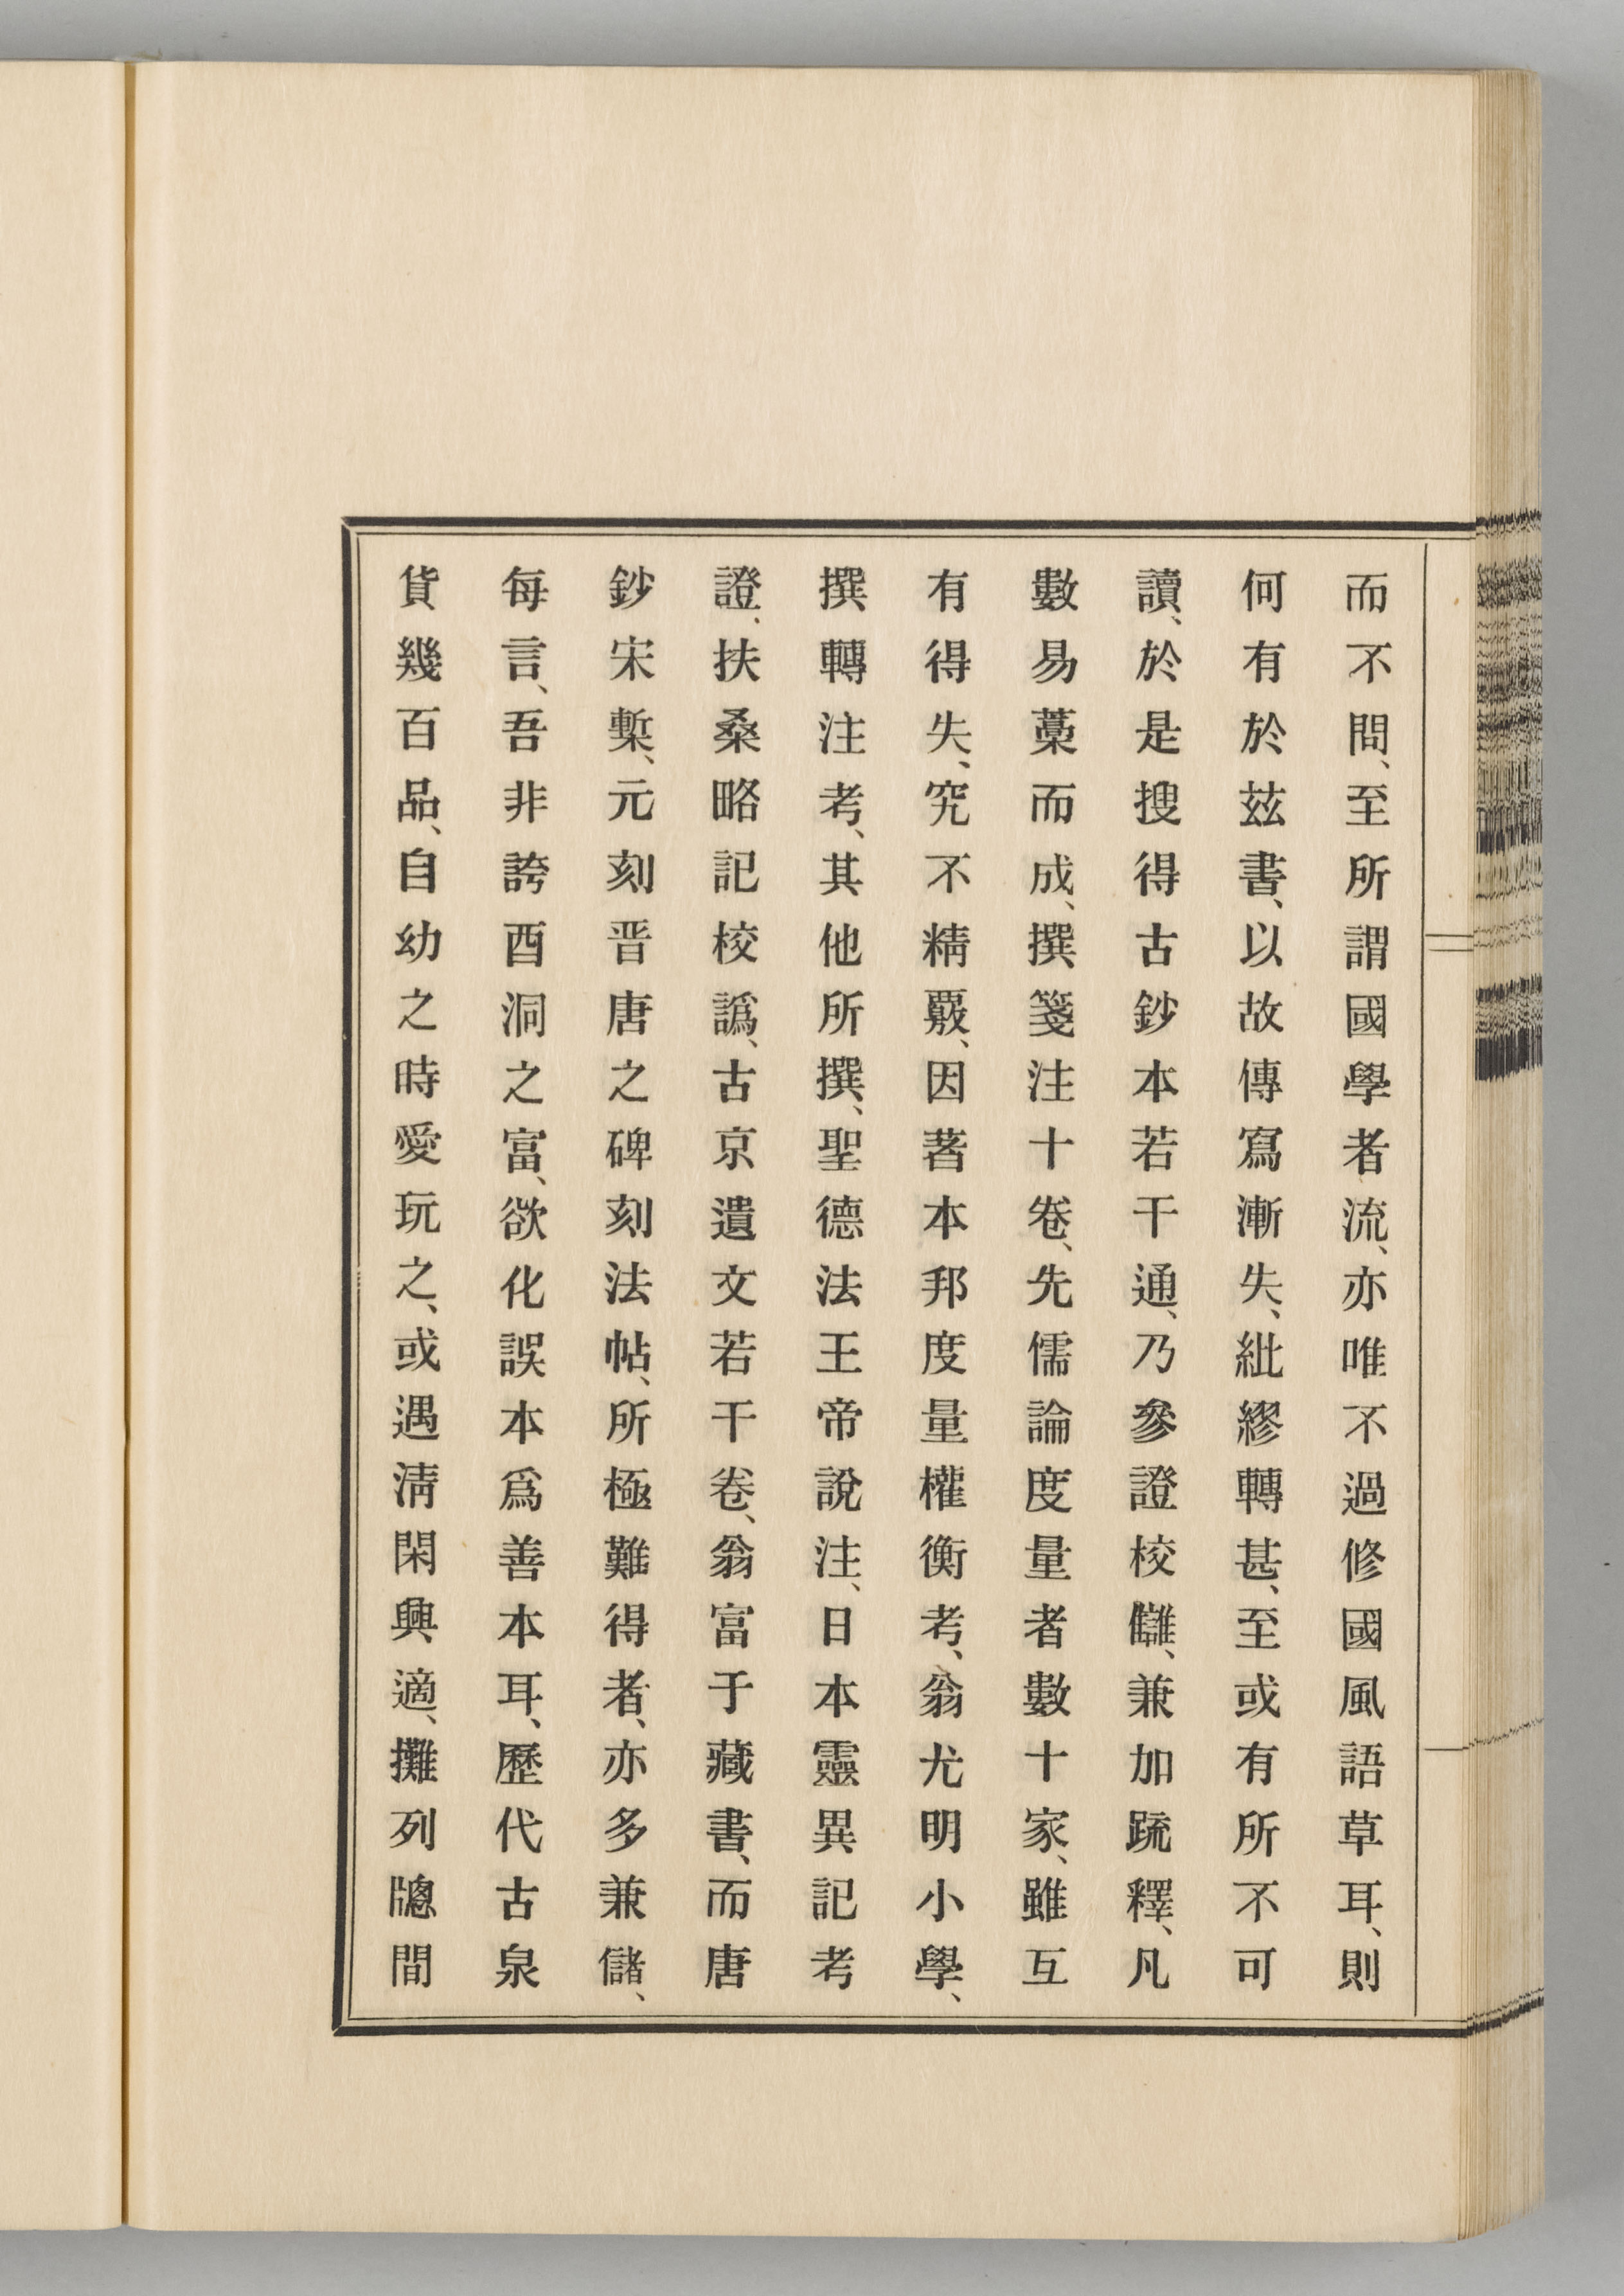 而不問、至所謂國學者流、亦唯不過修國風語草耳、則
何有於玆書、以故傳寫漸失、紕繆轉甚、至或有所不可
讀、於是搜得古鈔本若干通、乃參證校讎、兼加疏釋、凡
數易藁而成、撰箋注十卷、先儒論度量者數十家、雖互
有得失、究不精覈、因著本邦度量權衡考、翁尤明小學、
撰轉注考、其他所撰、聖德法王帝說注、日本靈異記考
證、扶桑略記校譌、古京遺文若干卷、翁富于藏書、而唐
鈔宋槧、元刻晋唐之碑刻法帖、所極難得者、亦多兼儲、
每言、吾非誇酉洞之富、欲化誤本爲善本耳、歷代古泉
貨幾百品、自幼之時愛玩之、或遇淸閑興適、攤列牕間